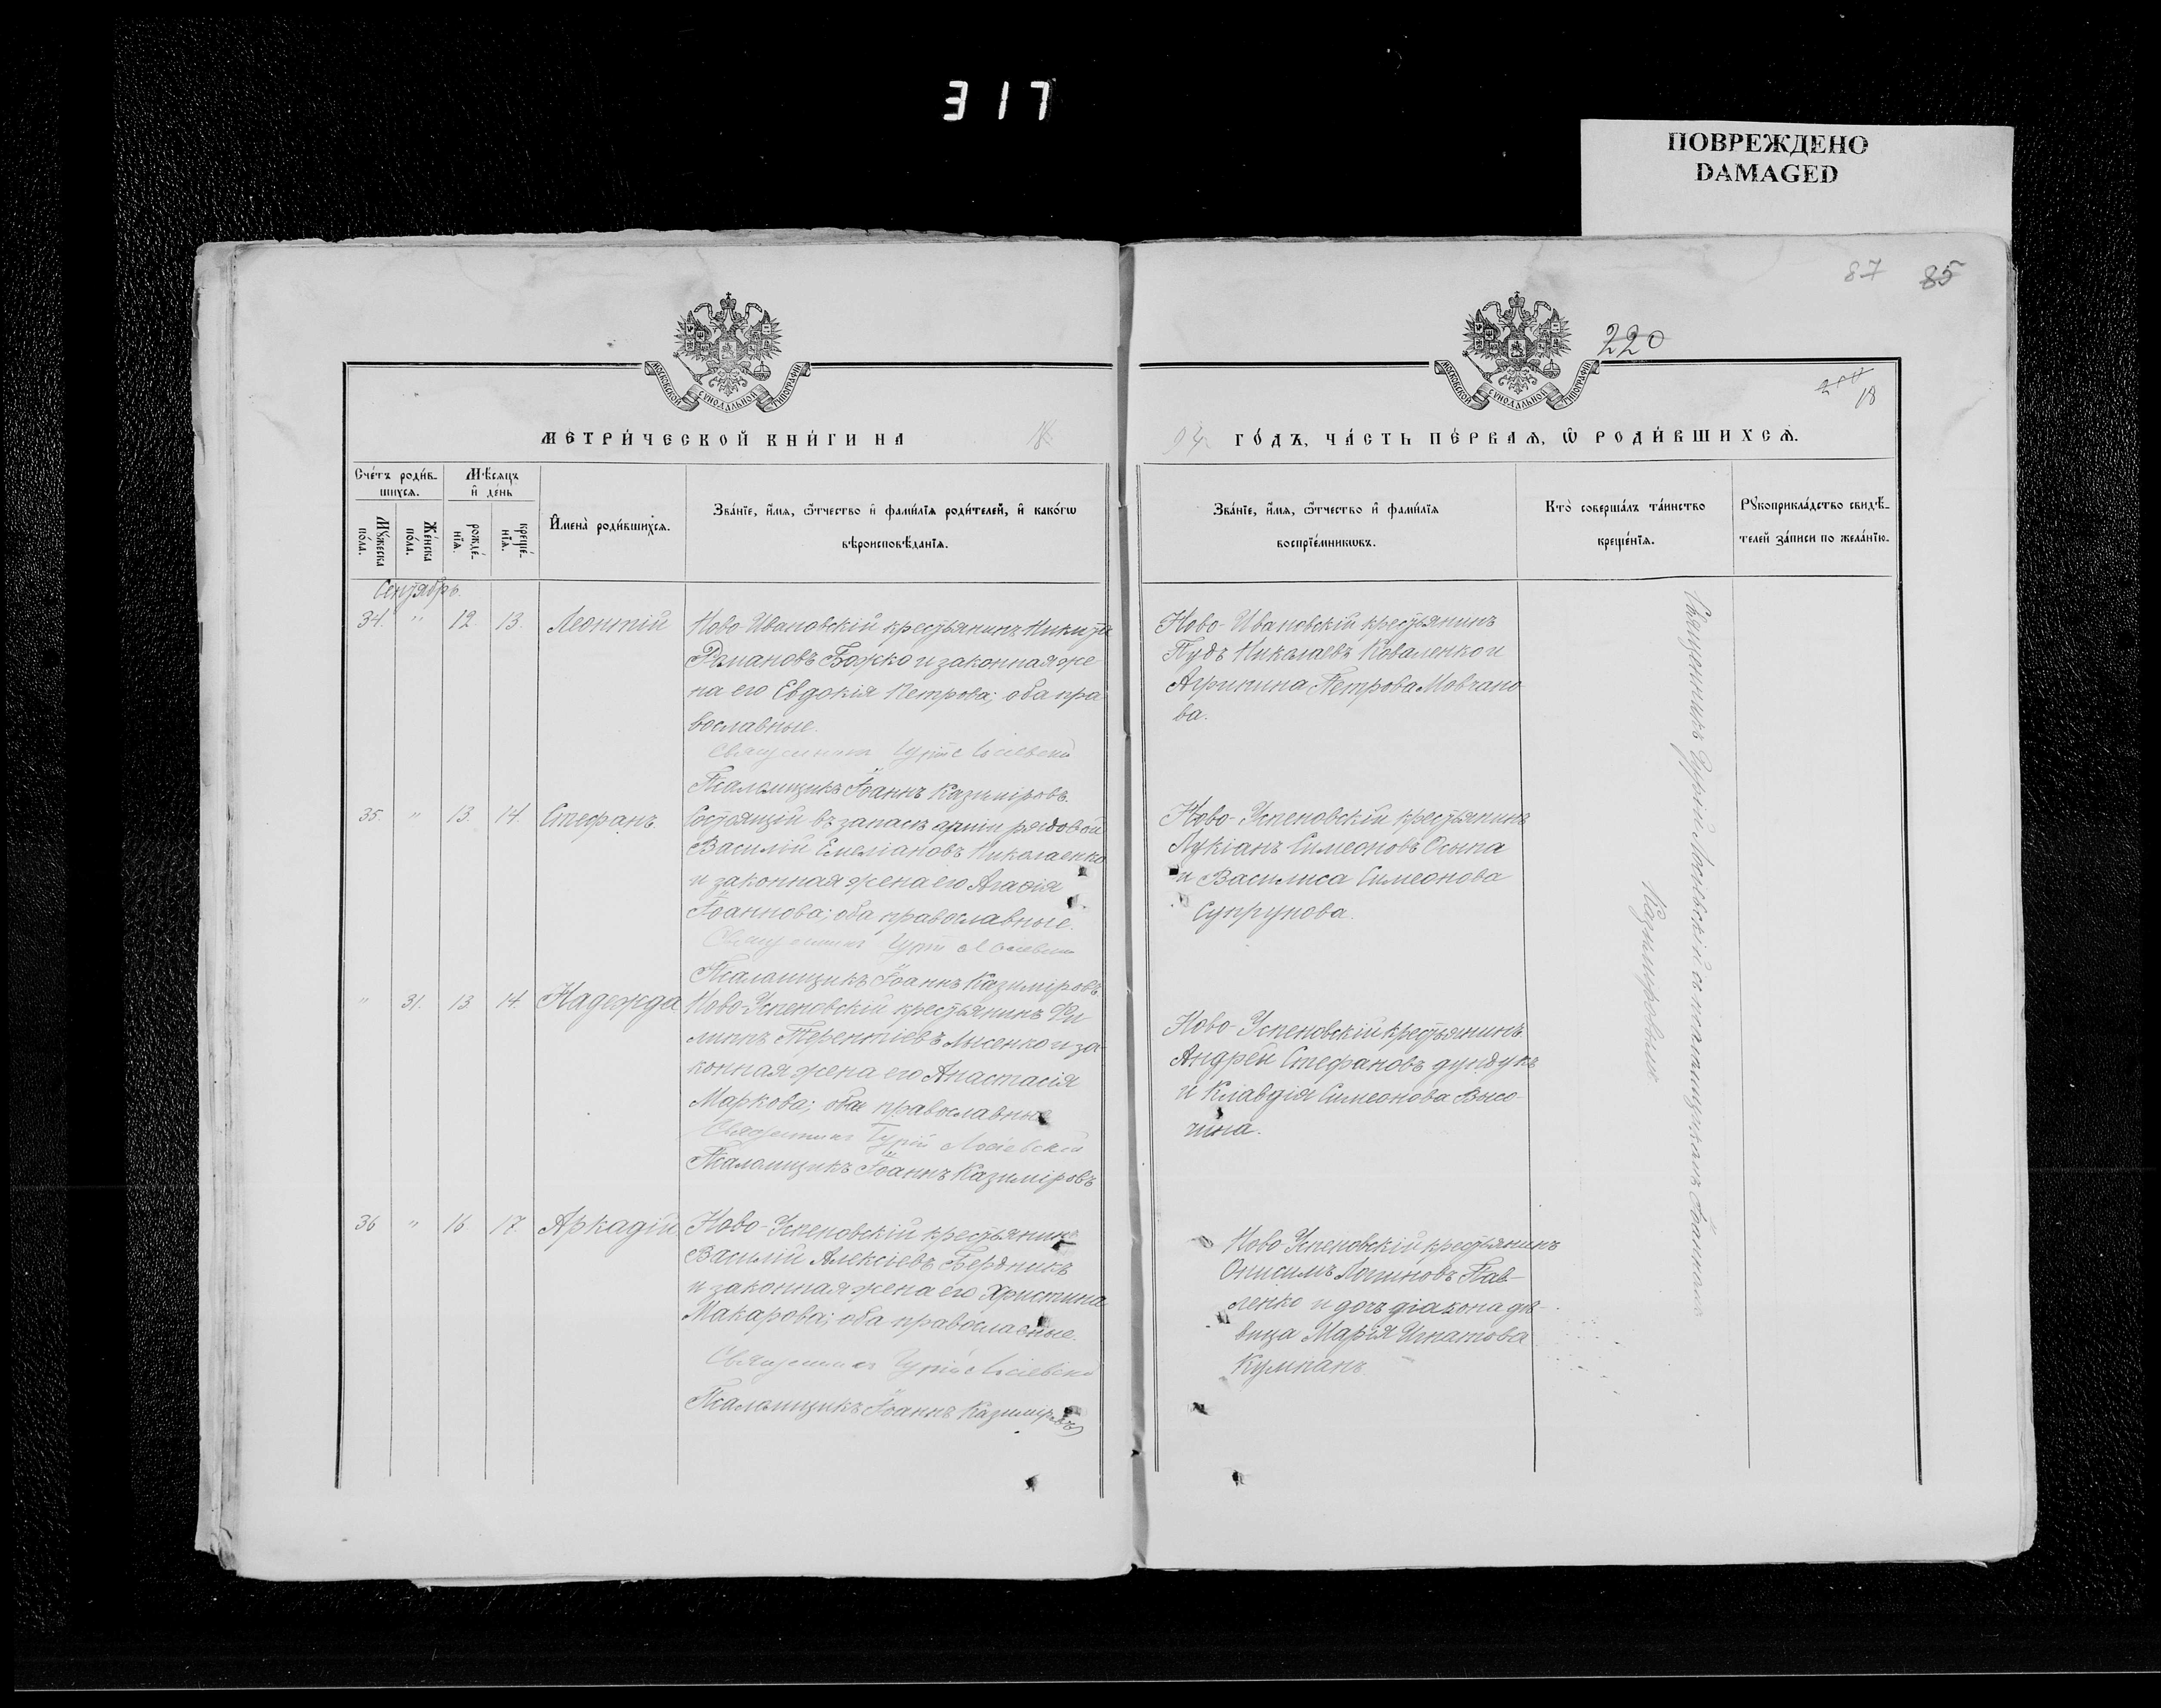 317
ПОВРЕЖДЕНО
DAMAGED
87 85
220
18
МОСКОВСКОЙ СѴНОДАЛЬНОЙ ТИПОГРАФІИ
МОСКОВСКОЙ СѴНОДАЛЬНОЙ ТИПОГРАФІИ
МЕТРИ́ЧЕСКОЙ КНИ́ГИ НА 18
94 ГО́ДЪ, ЧА́СТЬ ПЕ́РВАѦ, Ѿ РОДИ́ВШИХСѦ.
Сче́тъ роди́в-
шихсѧ.
Мꙋ́жеска по́ла.
Же́нска по́ла.
Мѣ́сѧцъ
и҆ де́нь
рожде́-нїѧ.
креще́-нїѧ.
И҆мена̀ роди́вшихсѧ.
Зва́нїе, и҆́мѧ, ѻ҆́тчество и҆ фами́лїѧ роди́телей, и҆ како́гѡ
вѣроисповѣ́данїѧ.
Зва́нїе, и҆́мѧ, ѻ҆́тчество и҆ фами́лїѧ
воспрїе́мникѡвъ.
Кто̀ соверша́лъ та́инство
креще́нїѧ.
Рꙋкоприкла́дство свидѣ́-
телей за́писи по жела́нїю.
Сентябрь.
34. " 12. 13. Леонтій
Ново-Ивановскій крестьянинъ Никита
Романовъ Божко и законная же
на его Евдокія Петрова; оба пра
вославные.
Священникъ Гурій Лосіевскій
Псаломщикъ Іоаннъ Казиміровъ.
Ново-Ивановскій крестьянинъ
Пудъ Николаевъ Коваленко и
Агрипина Петрова Мовчано
ва.
35. " 13. 14. Стефанъ
Состоящій въ запасѣ арміи рядовой
Василій Емеліановъ Николаенко
и законная жена его Агафія
Іоаннова; оба православные.
Священникъ Гурій Лосіевскій
Псаломщикъ Іоаннъ Казиміровъ.
Ново-Успеновскій крестьянинъ
Лукіанъ Симеоновъ Осыпа
и Василиса Симеонова
Супрунова.
" 31. 13. 14. Надежда
Ново-Успеновскій крестьянинъ Фи
липпъ Терентіевъ Лысенко и за
конная жена его Анастасія
Маркова; оба православные
Священникъ Гурій Лосіевскій
Псаломщикъ Іоаннъ Казиміровъ
Ново-Успеновскій крестьянинъ
Андрей Стефановъ Дундукъ
и Клавдія Симеонова Высо-
чина.
36 " 16 17. Аркадій
Ново-Успеновскій крестьянинъ
Василій Алексіевъ Бердникъ
и законная жена его Христина
Макарова; оба православные.
Священникъ Гурій Лосіевскій
Псаломщикъ Іоаннъ Казиміровъ
Ново Успеновскій крестьянинъ
Онисимъ Логиновъ Пав-
ленко и дочь діакона дѣ-
вица Марія Игнатова
Кулипанъ
Священникъ Гурій Лосіевскій съ псаломщикомъ Іоанномъ
Казиміровымъ